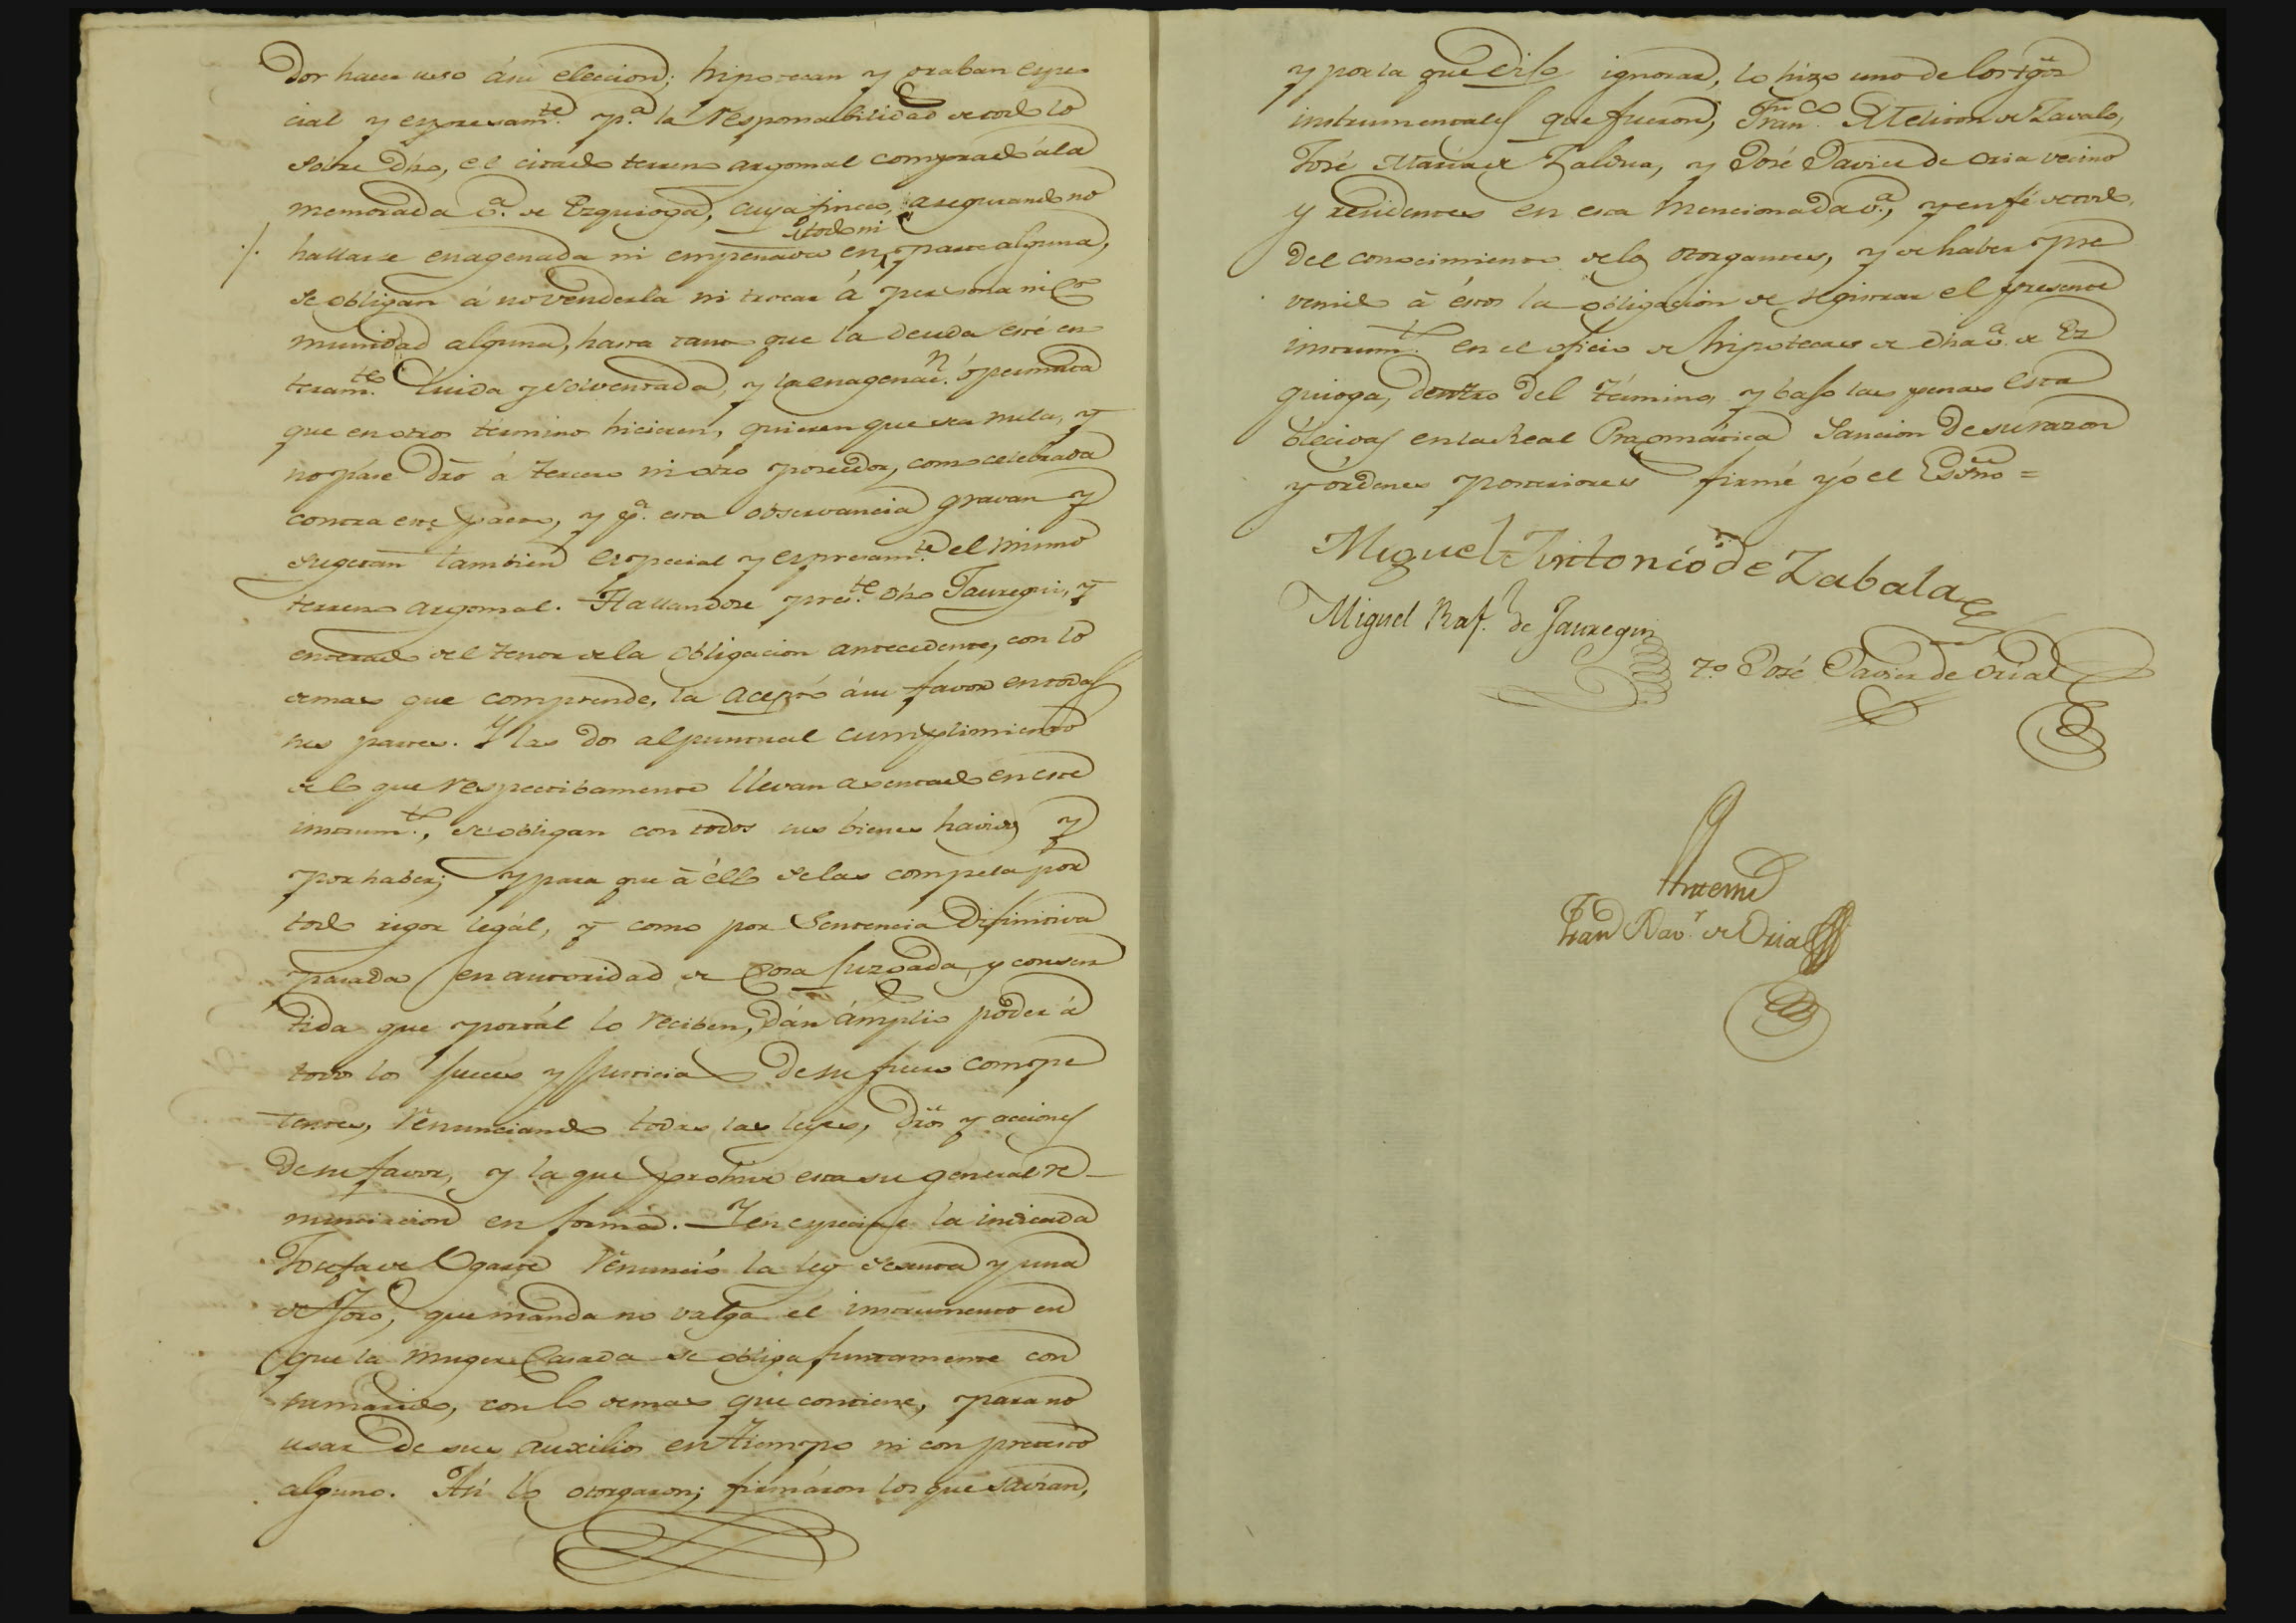 dor hacer uso á su eleccion; hipotecan y graban espe
cial y expresam.te p.a la responsabilidad de todo lo
sobre dho, el citado terreno argomal comprado á la
memorada v.a de Ezquioga, cuya finca, asegurando no
./. hallarse enagenada ni empeñada en todo ni parte alguna,
se obligan á no venderla ni trocar á persona ni co
munidad alguna, hasta tanto que la deuda esté en
teram.te luida y solventada, y la enagenac.n ó permuta
que en otros términos hicieren, quieren que sea nula, y
no pase dro á tercero ni otro poseedor, como celebrada
contra este pacto, y p.a esta observancia gravan y
sugetan tambien especial y expresam.te el mismo
terreno argomal. Hallandose pres.te dho Jauregui, y
enterado del tenor de la obligacion antecedente, con lo
demas que comprende, la aceptó á su favor en todas
sus partes. Y las dos al puntual cumplimiento
de lo que respectibamente llevan asentado en este
instrum.to, se obligan con todos sus bienes havidos y
por haber; y para que á éllo se las compela por
todo rigor legál, y como por Sentencia difinitiva
pasada en autoridad de Cosa juzgada, y consen
tida que por tál lo reciben, dán ámplio poder á
todos los Jueces y Justicias de su fuero compe
tentes, renunciando todas las leyes, dros y acciones
de su favor, y la que prohive esta su general re-
nunciacion en forma. Y en especial la indicada
Josefa de Ogarte renunció la ley sesenta y una
de Toro, que manda no valga el instrumento en
que la muger Casada se obliga juntamente con
su marido, con lo demas que contiene, para no
usar de sus auxilios en tiempo ni con pretesto
alguno. Así lo otorgaron; firmáron los que savian,
y por la que dijo ignorar, lo hizo uno de los tgos
instrumentales que fueron, Fran.co Meliton de Zavala,
José Maria de Zaldua, y José Javier de Oria vecino
y residentes en esta mencionada v.a, y en fé de todo,
del conocimiento de los otorgantes, y de haber pre
venido á éstos la obligacion de registrar el presente
instrum.to en el oficio de hipotecas de dha v.a de Ez
quioga, dentro del término, y bajo las penas esta
blecidas en la Real Pragmática Sancion de su razon
y órdenes posteriores firmé yó el Essno =
Miguel Antonio de Zabala
Miguel Raf.l de Jauregui
t.o José Javier de Oria
Antemi
Juan Xav.r de Oria